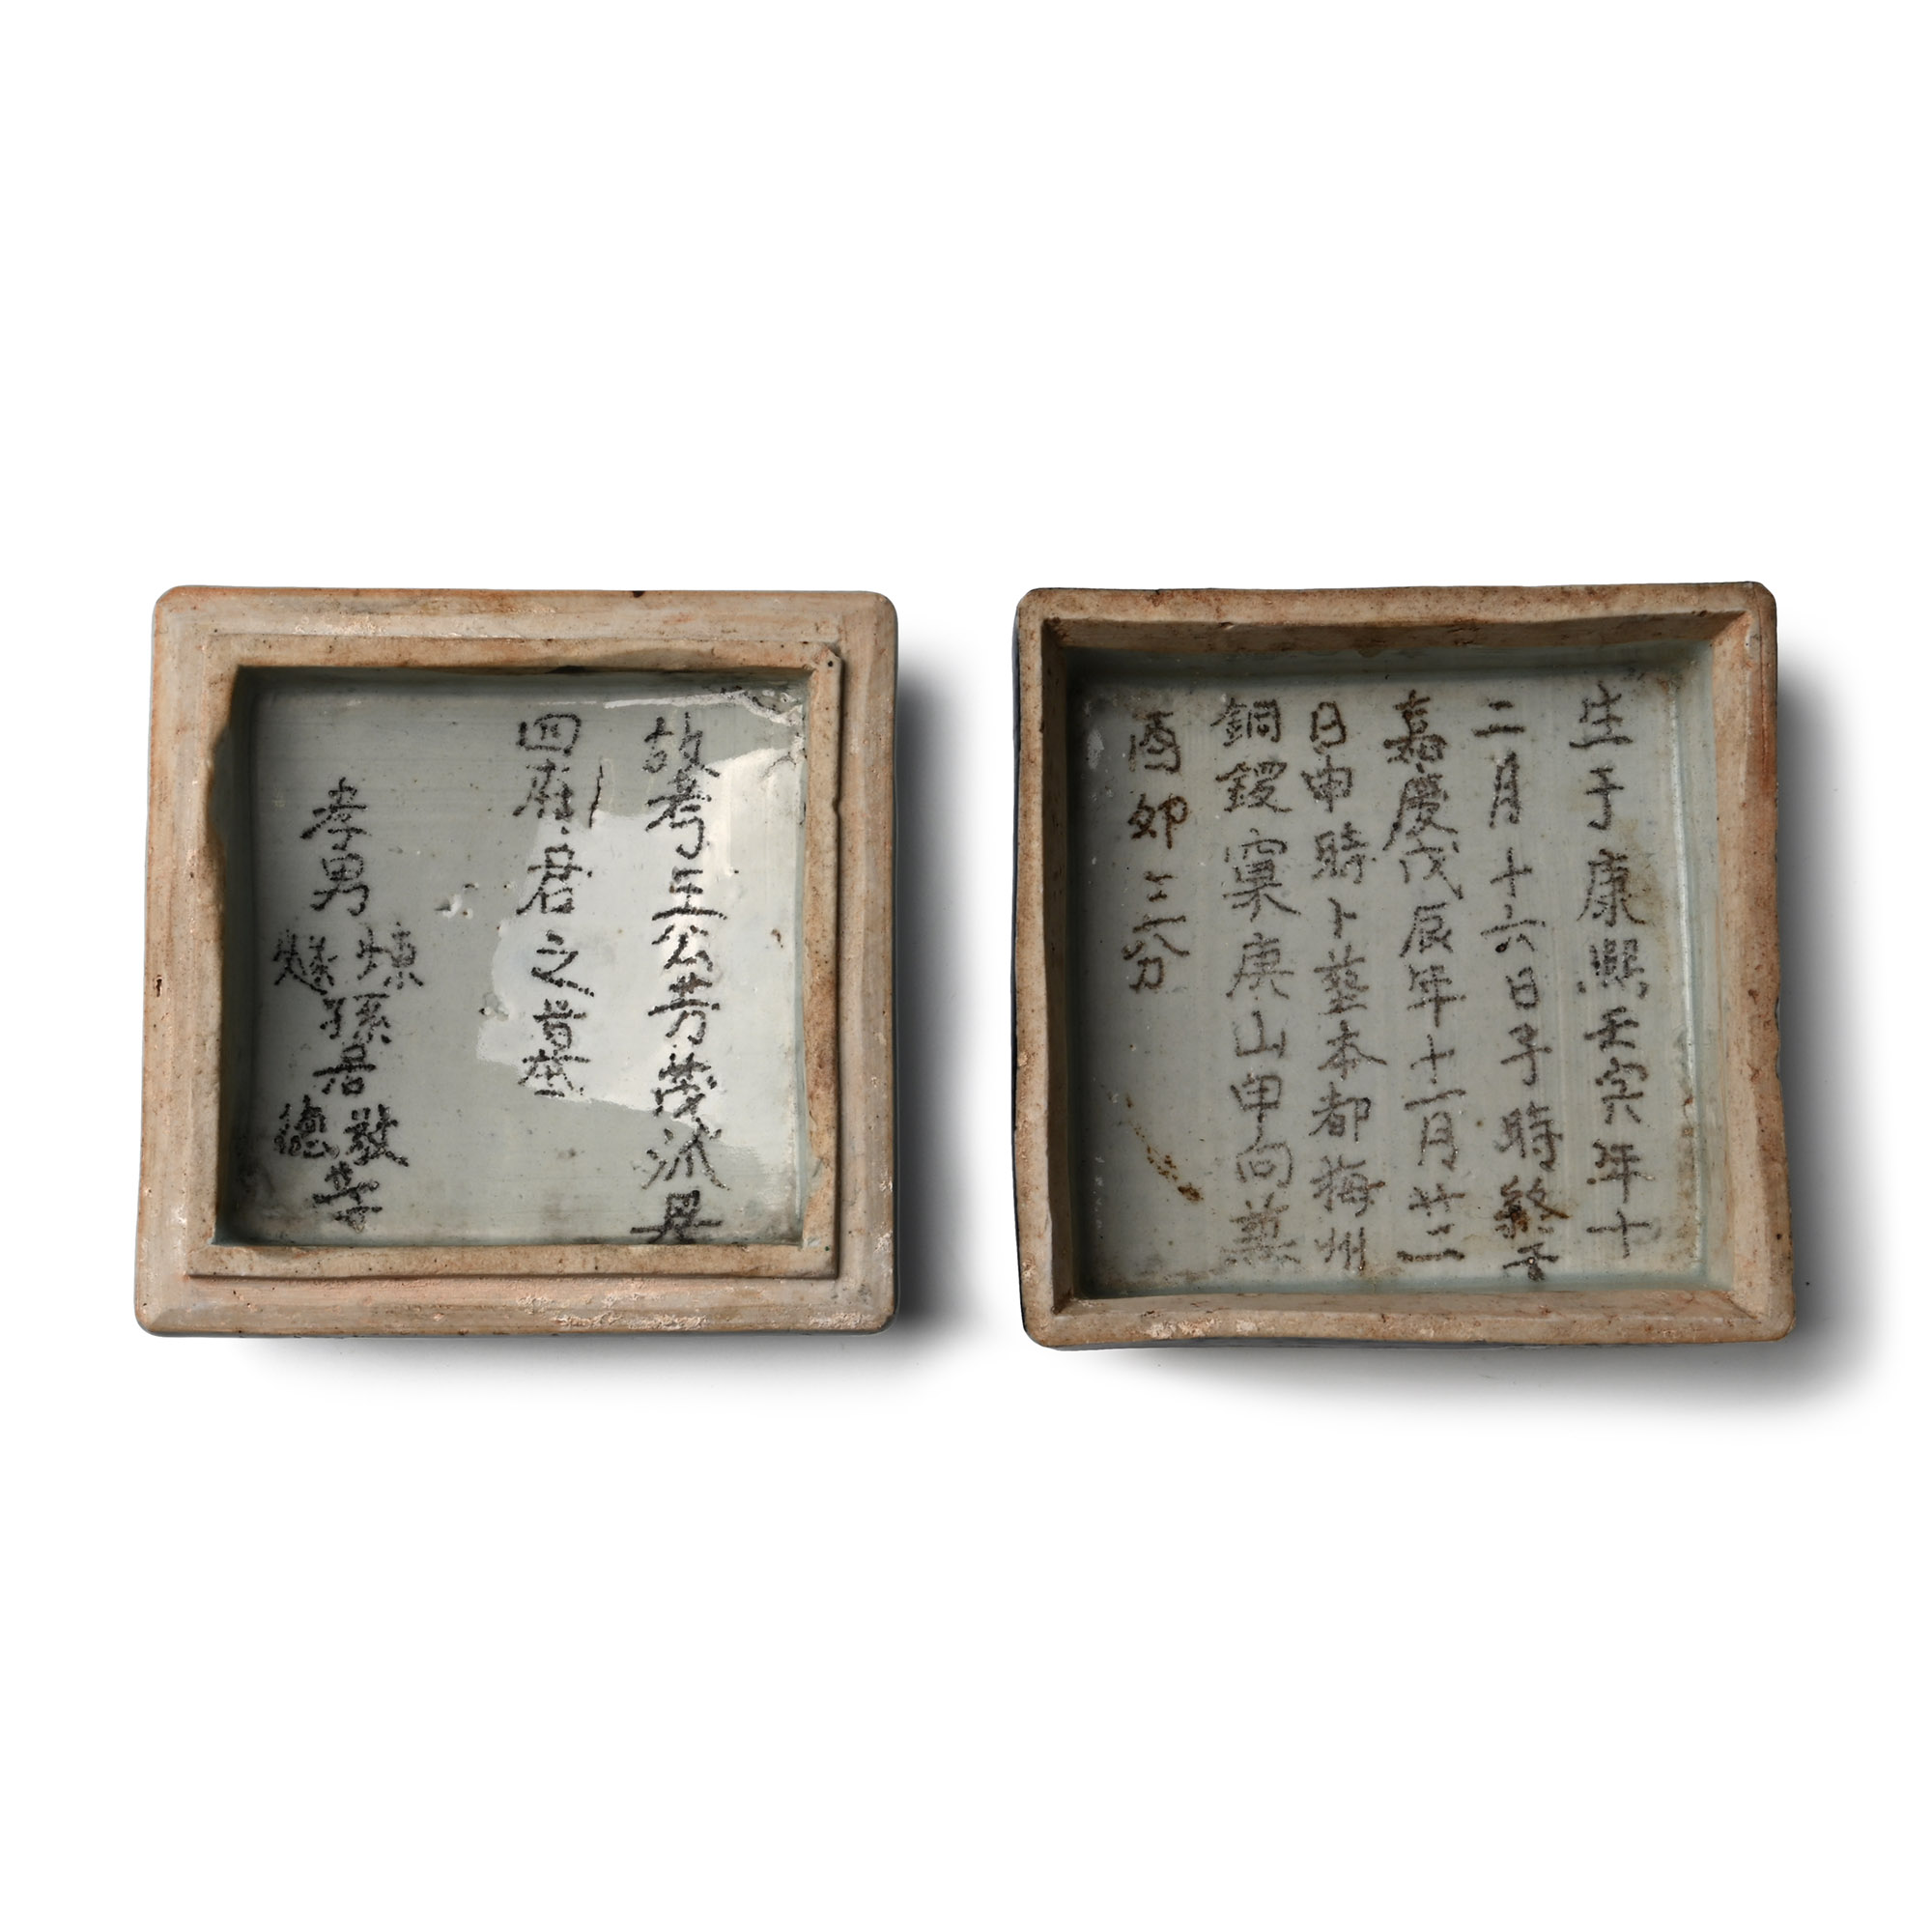 故考王公芳茂派
四府君之墓
孝男煉燧孫君敬德等
生于康熙壬寅年十
二月十六日子時終于
嘉慶戊辰年十一月廿二
日申時卜塟本都梅州
銅鑼窠庚山申向兼
酉卯三分